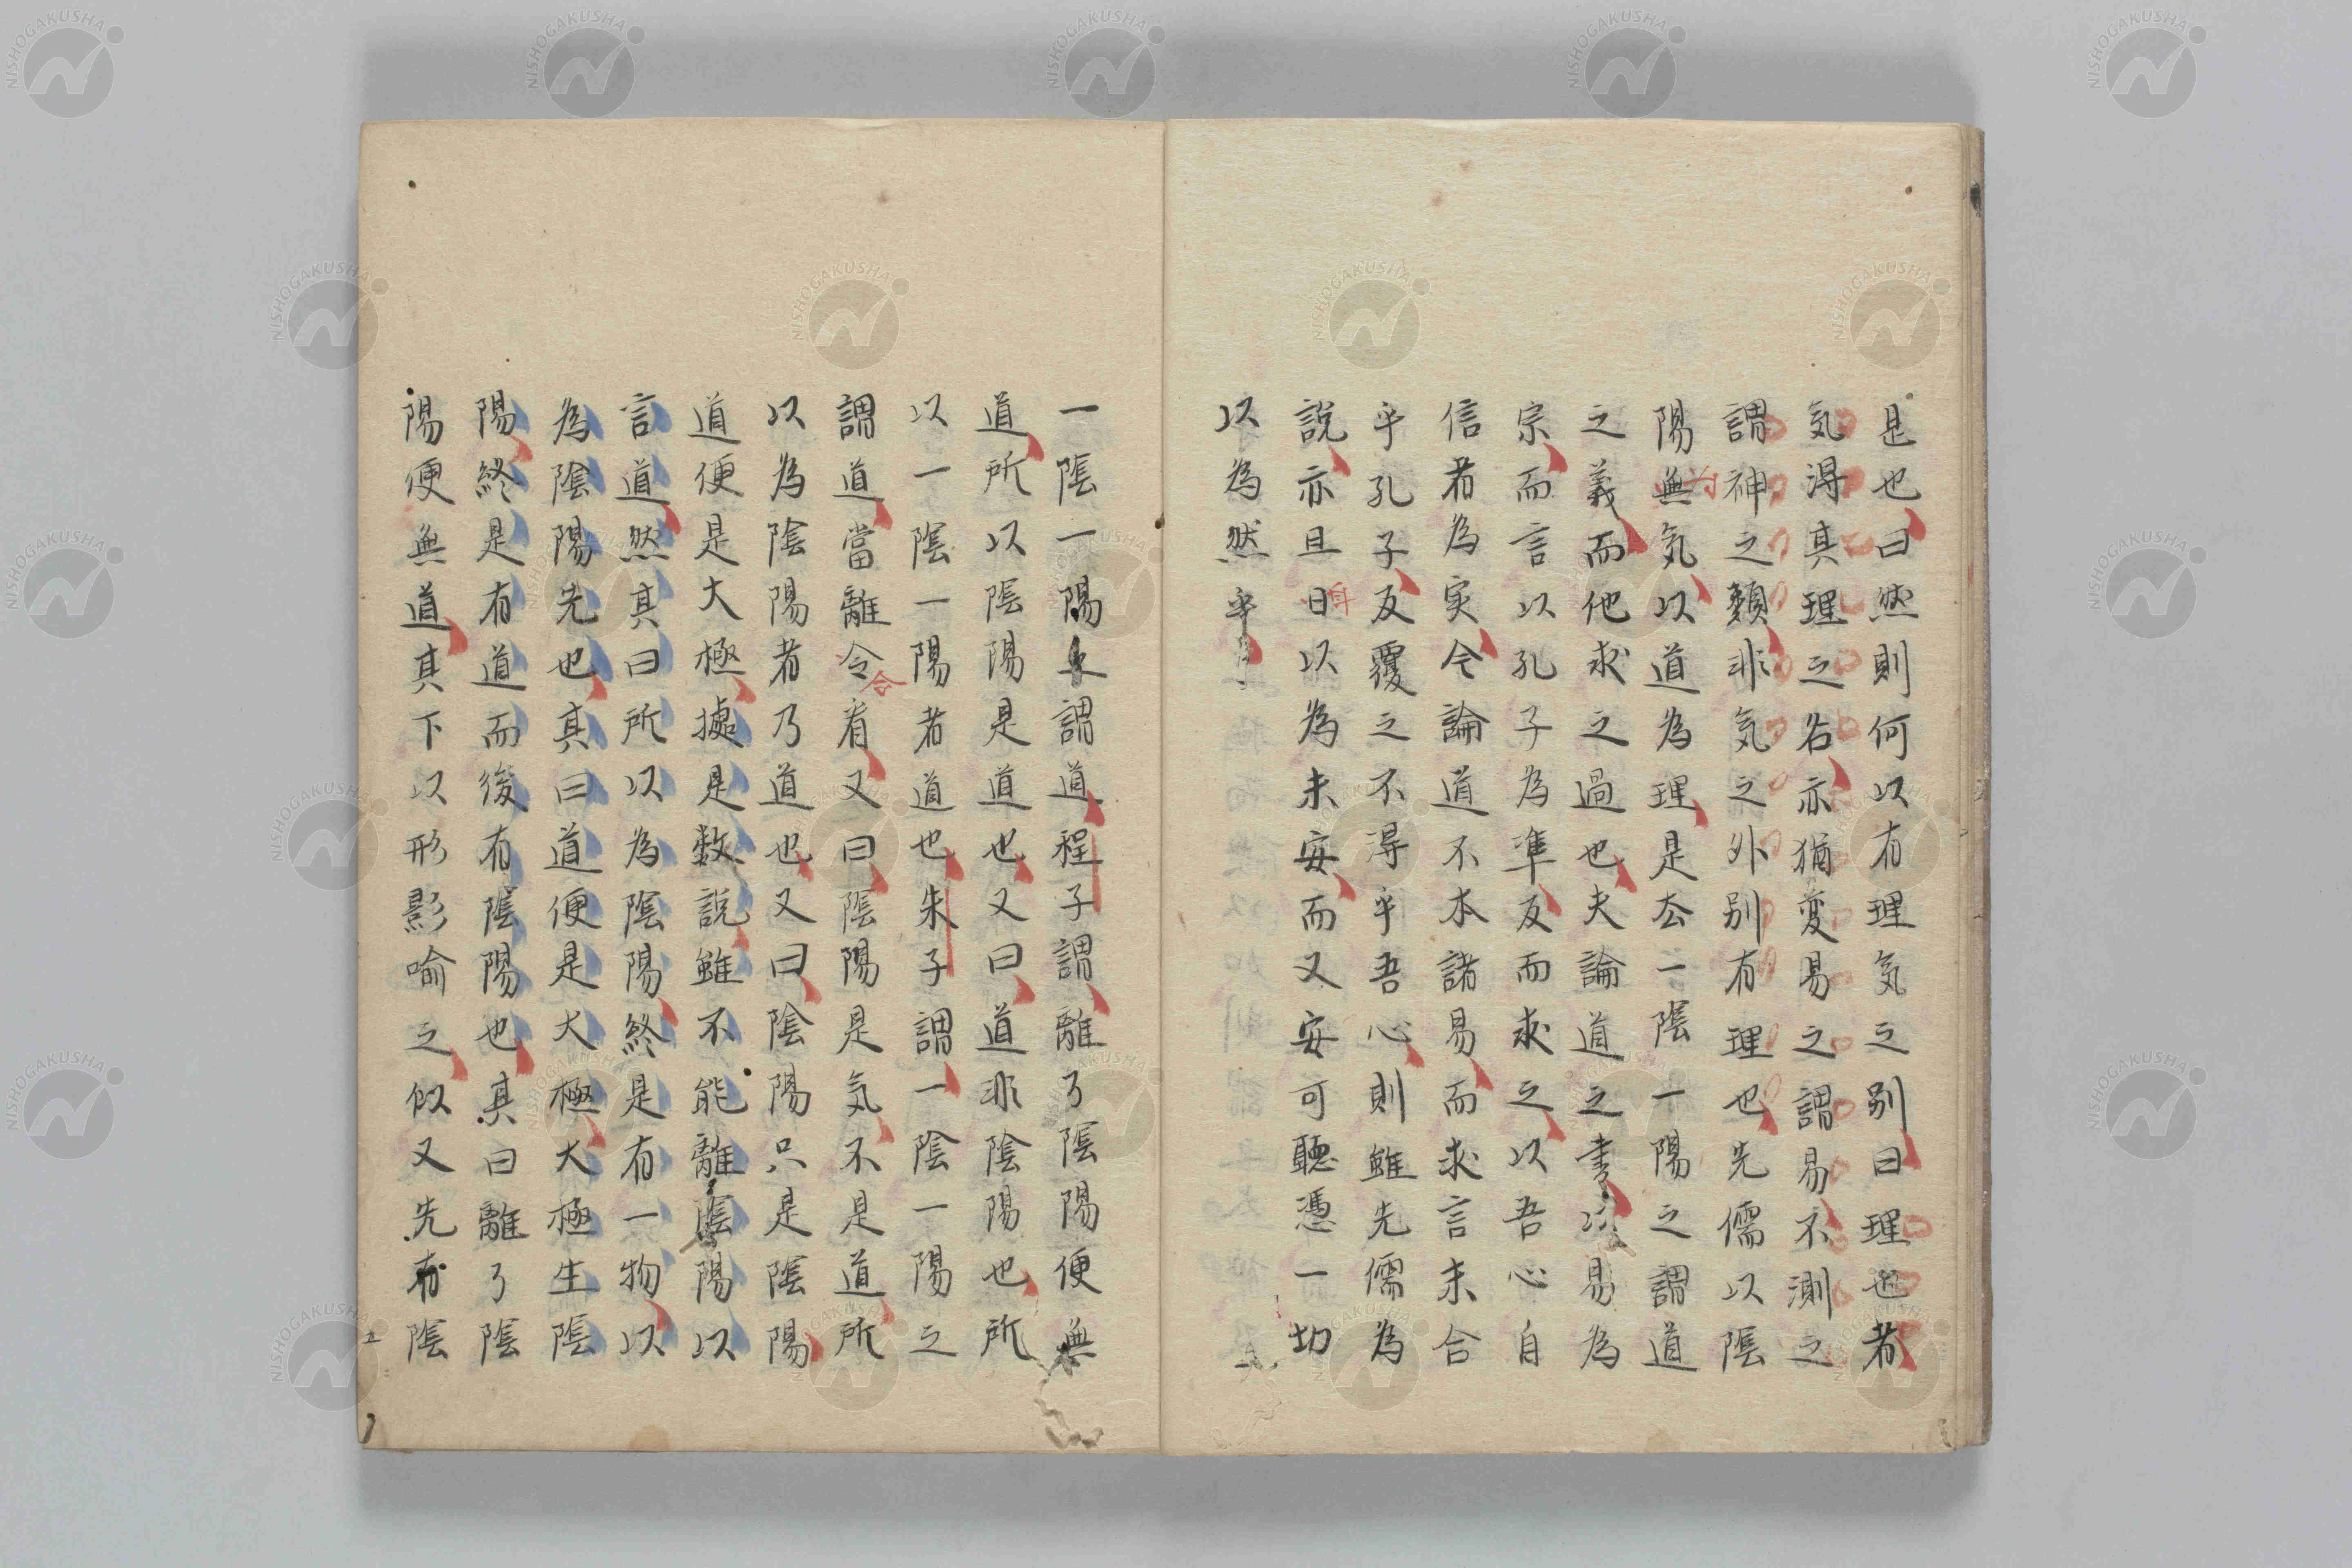 是也曰然則何以有理気之別曰理也者
気得其理之名亦猶変易之謂易不測之
謂神之類非気之外別有理也先儒以陰
陽無気以道為理是太一陰一陽之謂道
为
之義而他求之過也夫論道之書以易為
宗而言以孔子為準反而求之以吾心自
信者為実今論道不本諸易而求言未合
乎孔子反覆之不得乎吾心則雖先儒為
説亦且日以為未安而又安可聴憑一切
耳
以為然乎
一陰一陽之謂道程子謂離了陰陽便無
道所以陰陽是道也又曰道非陰陽也所
以一陰一陽者道也朱子謂一陰一陽之
謂道當離令看又曰陰陽是気不是道所
合
以為陰陽者乃道也又曰陰陽只是陰陽
道便是大極據是数説雖不能離陰陽以
言道然其曰所以為陰陽終是有一物以
為陰陽先也其曰道便是大極大極生陰
陽終是有道而後有陰陽也其曰離了陰
陽便無道其下以形影喻之似又先有陰
NISHOGAKUSHA